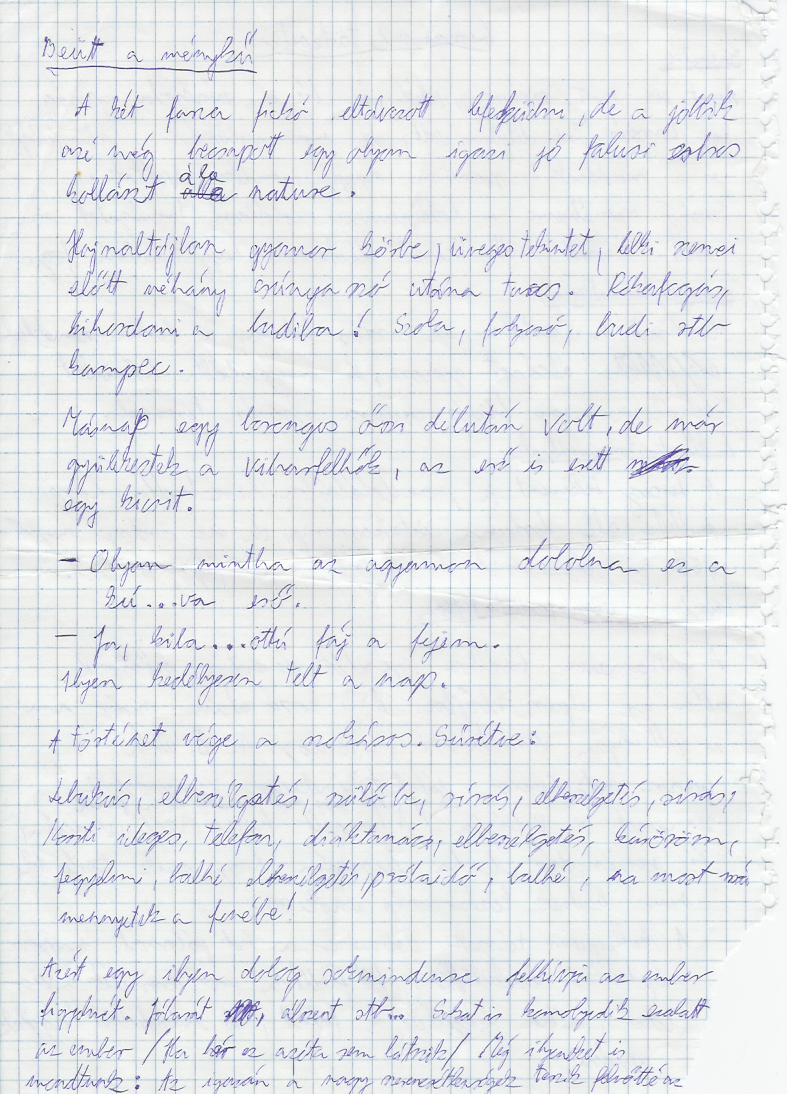 Beütt a ménykű
A két fasza fickó eltávozott lefeküdni, de a jóltik
azé még becsapott egy olyan igazi jó falusi szalvas
kollászt ála nature.
Hajnaltájban gyomor körbe, üveges tekintet, lelki szemei
előtt néhány csúnya szó utána taccs. Rókafogás,
kihordani a budiba! Szoba, folyosó, budi stb
kampec.
Másnap egy borongos őszi délután volt, de már
gyülekeztek a viharfelhők, az eső is esett
egy kicsit.
- Olyan mintha az agyamon dobolna ez a
kú...va eső.
- Ja, kiba...ottú fáj a fejem.
Ilyen kedélyesen telt a nap.
A történet vége a szokásos. Sűrítve:
Lebukás, elbeszélgetés, szülő be, sírás, elbeszélgetés, sírás,
Kriszti ideges, telefon, diáktanács, elbeszélgetés, káröröm,
fegyelmi, balhé elbeszélgetés, próbaidő, balhé, na most már
mennyetek a fenébe!
Azért egy ilyen dolog sokmindenre felhívja az ember
figyelmét. Jóbarát, álszent stb... Sokat is komolyodik ezalatt
az ember /Ha bár ez azóta sem látszik/ Még ilyeneket is
mondtunk: Az igazán a nagy szerencsétlenségek teszik felnőtté az